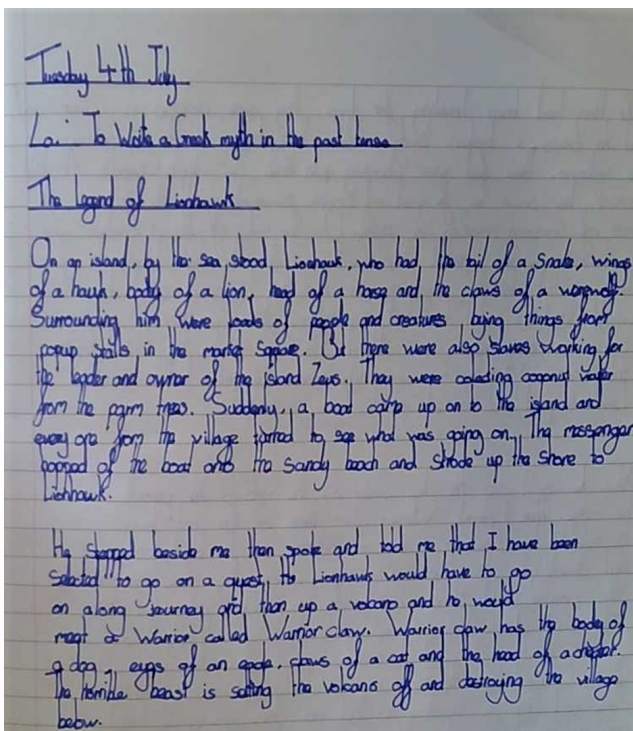 Tuesday 4th July
Lo: To Write a Greek myth in the past tense
The legend of Lionhawk
On an island, by the sea, stood, Lionhawk, who had the tail of a snake, wings
of a hawk, body of a lion, head of a horse and the claws of a
Surrounding him were loads of people and creatures bying things from
popup stalls in the market square. But there were also slaves working for
the leader and owner of the island Zeus. They were coconut water
from the trees. Suddenly, a boat up on to the island and
every one from the village turned to see what was going on. The messenger
popped of the boat onto the sandy beach and strode up the shore to
Lionhawk.
He stepped beside me then spoke and told me, that I have been
selected to go on a quest, Lionhawk would have to go
on along journey and then up a volcano and he would
meet a Warrior called Warrior claw. Warrior claw has the body of
a dog, eyes of an eagle, claws of a cat and the head of a
The horrible beast is setting the volcano off and destroying the village
below.